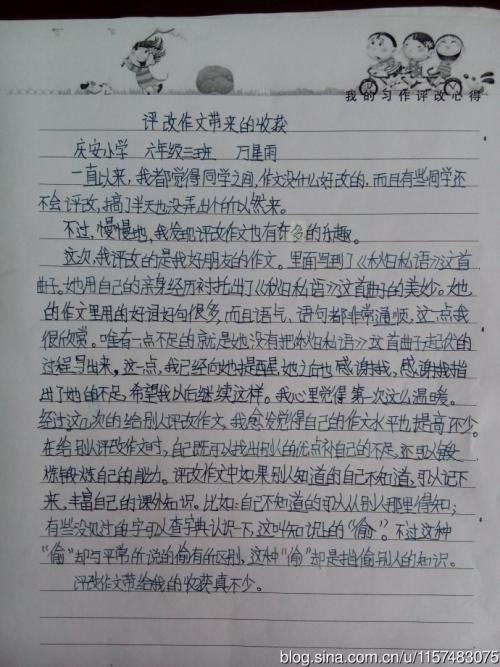 我的习作评改心得
评改作文带来的收获
庆安小学 六年级三班 万星雨
一直以来,我都觉得同学之间,作文没什么好改的,而且有些同学还
不会评改,搞了半天也没弄出个所以然来。
不过,慢慢地,我发现评改作文也有许多的乐趣。
这次,我评改的是我好朋友的作文。里面写到了《秋日私语》这首
曲子,她用自己的亲身经历衬托出了《秋日私语》这首曲子的美妙。她
的作文里用的好词好句很多,而且语句、语句都非常通顺,这一点我
很欣赏。唯有一点不足的就是她没有把《秋日私语》这首曲子起伏的
过程写出来,这一点,我已经向她提醒,她也感谢我,感谢我指
出了她的不足,希望我以后继续这样。我心里觉得第一次这么温暖。
经过这几次的给别人评改作文,我愈发觉得自己的作文水平也提高不少。
在给别人评改作文时,自己既可以找出别人的优点补自己的不足,亦可以锻
炼锻炼自己的能力。评改作文中如果别人知道的自己不知道,可以记下
来,丰富自己的课外知识。比如:自己不知道的可以从别人那里得知;
有些没见过的字可以查字典认识一下,这叫知识上的“偷”。不过这种
“偷”却与平常所说的偷有所区别,这种“偷”却是指偷别人的知识。
评改作文带给我的收获真不少。
blog.sina.com.cn/u/1157483075